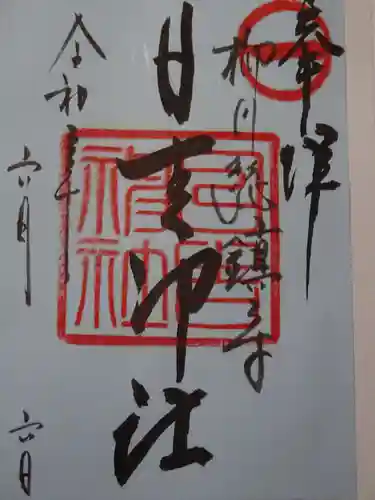 奉拝
柳川総鎮守
日吉神社
令和
六月
六日
日吉
神社